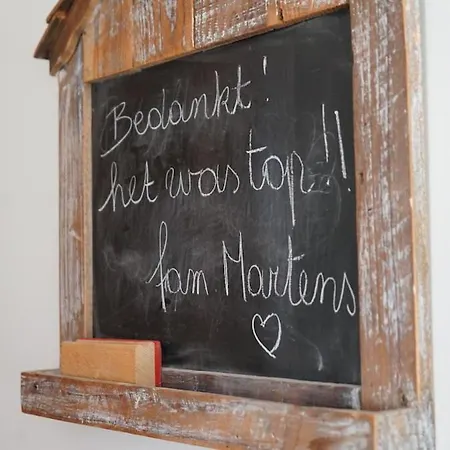 Bedankt!
het was top!!
fam Martens